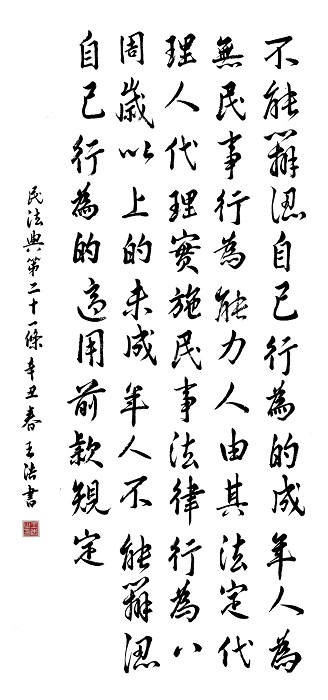 不能辦認自己行為的成年人為
無民事行為能力人由其法定代
理人代理實施民事法律行為八
周歲以上的未成年人不能辦認
自己行為的適用前款規定
民法典第二十一條辛丑春王浩書